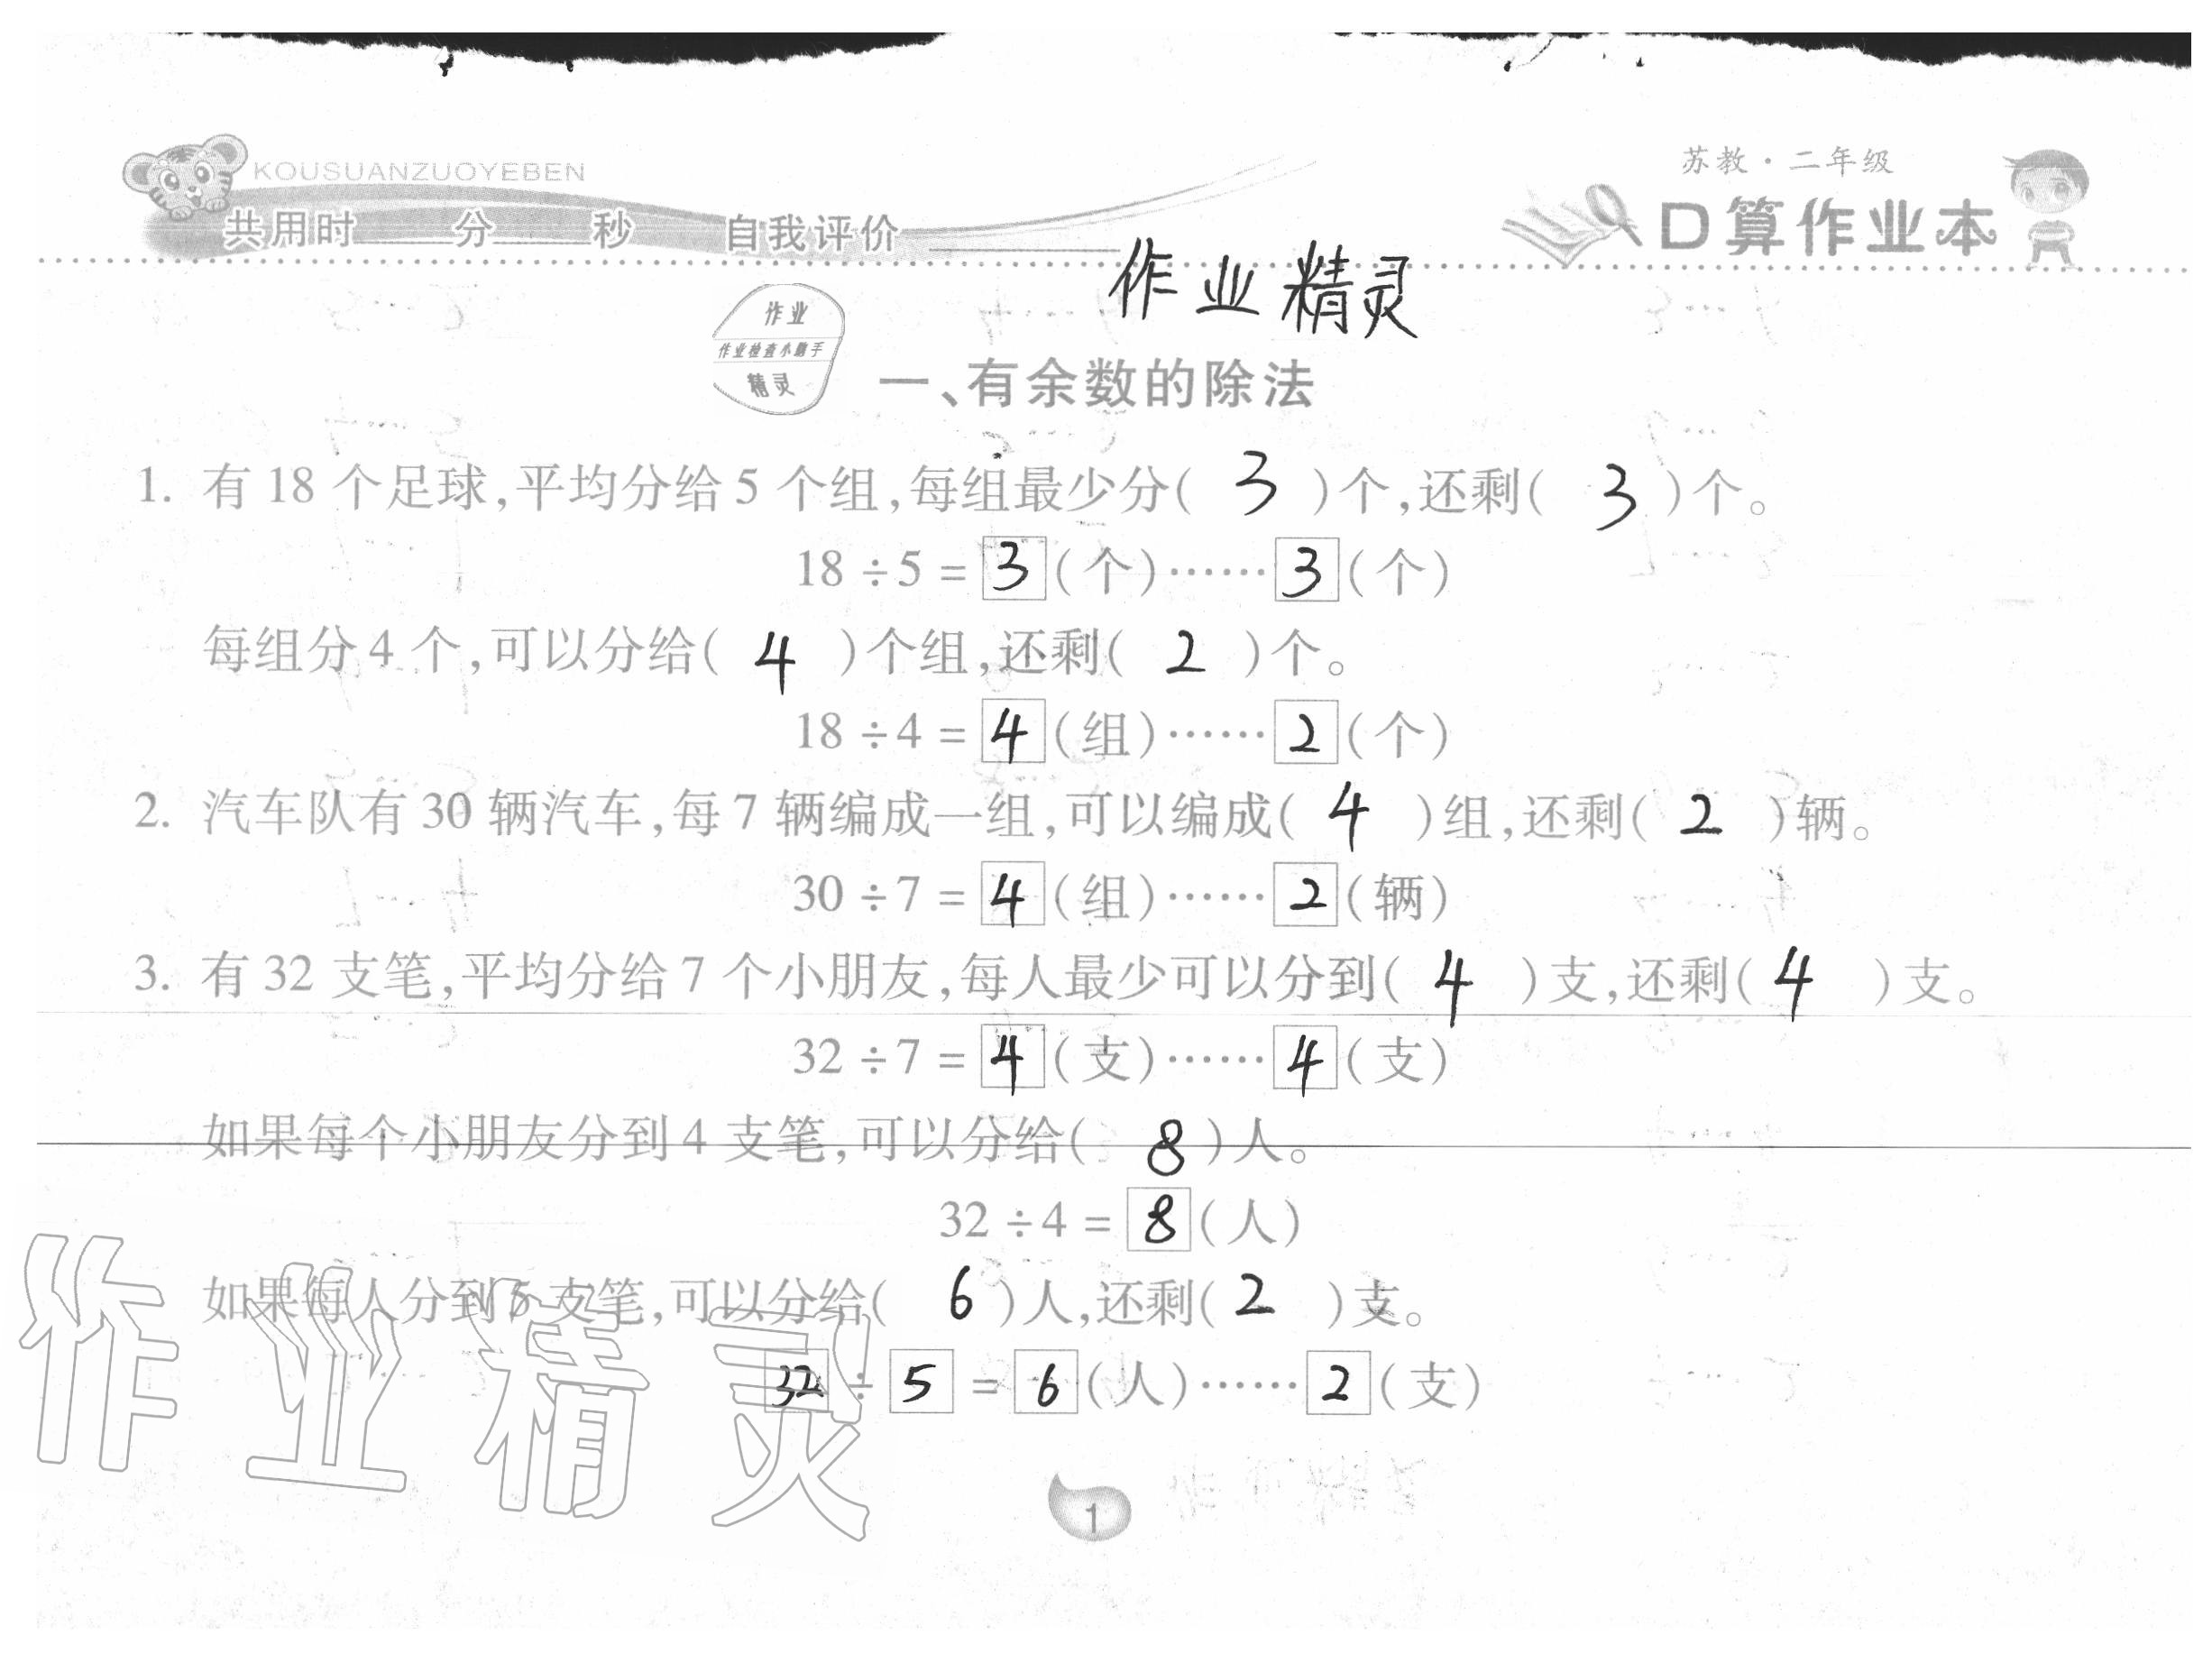 KOUSUANZUOYEBEN
苏教·二年级
共用时____分____秒 自我评价________
口算作业本
作业精灵
作业
作业检查小助手
精灵
一、有余数的除法
1. 有18个足球,平均分给5个组,每组最少分( 3 )个,还剩( 3 )个。
18÷5=3(个)……3(个)
每组分4个,可以分给( 4 )个组,还剩( 2 )个。
18÷4=4(组)……2(个)
2. 汽车队有30辆汽车,每7辆编成一组,可以编成( 4 )组,还剩( 2 )辆。
30÷7=4(组)……2(辆)
3. 有32支笔,平均分给7个小朋友,每人最少可以分到( 4 )支,还剩( 4 )支。
32÷7=4(支)……4(支)
如果每个小朋友分到4支笔,可以分给( 8 )人。
32÷4=8(人)
如果每人分到5支笔,可以分给( 6 )人,还剩( 2 )支。
32÷5=6(人)……2(支)
作业精灵
1